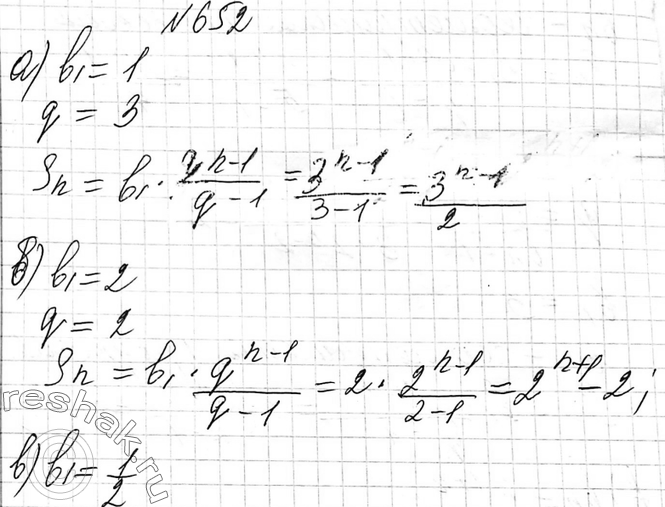 №652
а) b₁ = 1
q = 3
Sₙ = b₁ · qⁿ⁻¹/(q − 1) = 3ⁿ⁻¹/(3−1) = 3ⁿ⁻¹/2
б) b₁ = 2
q = 2
Sₙ = b₁ · qⁿ⁻¹/(q − 1) = 2 · 2ⁿ⁻¹/(2−1) = 2ⁿ⁺¹ − 2;
в) b₁ = 1/2
reshak.ru